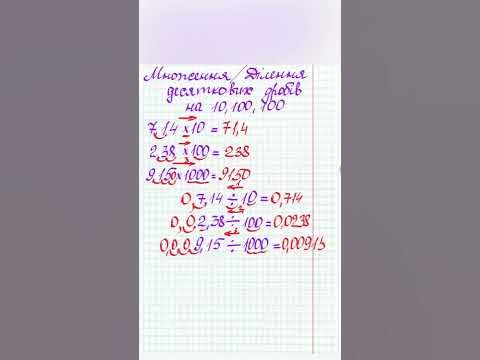 Множення/Ділення
десяткових дробів
на 10, 100, 100
7,14 × 10 = 71,4
2,38 × 100 = 238
9,150 × 1000 = 9150
0,7,14 ÷ 10 = 0,714
0,0,2,38 ÷ 100 = 0,0238
0,0,0,9,15 ÷ 1000 = 0,00915